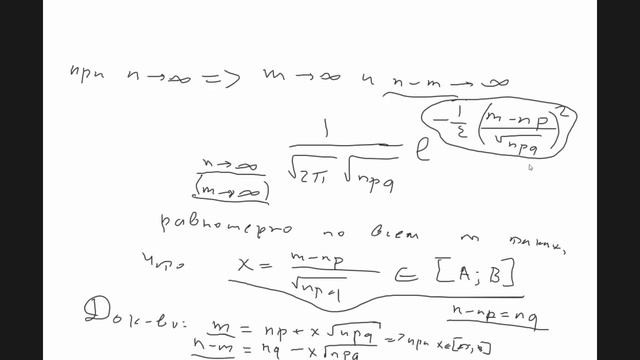 при n→∞ => m→∞ и n-m→∞
n→∞ (m→∞) 1/(√2π √npq) e^(-1/2 ((m-np)/√npq)^2)
равномерно по всем m таких,
что x = (m-np)/√npq ∈ [A; B]
n-np=nq
Док-во: m = np + x√npq => при x∈[A, B]
n-m = nq - x√npq